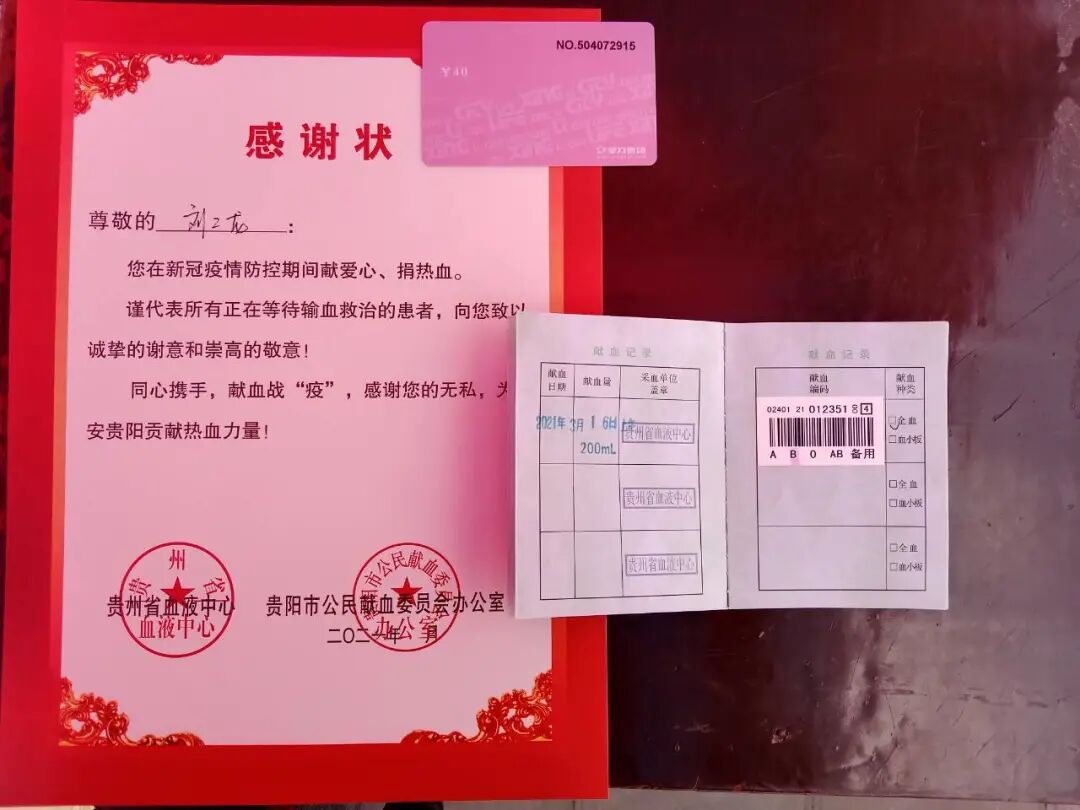 感谢状
尊敬的 刘二龙 ：
您在新冠疫情防控期间献爱心、捐热血。
谨代表所有正在等待输血救治的患者，向您致以
诚挚的谢意和崇高的敬意！
同心携手，献血战“疫”，感谢您的无私，为
安贵阳贡献热血力量！
贵州省
血液中心
贵州省血液中心
贵阳市公民献血委员会
办公室
贵阳市公民献血委员会办公室
二〇二一年 月
NO.504072915
¥40
献血记录
献血日期
献血量
采血单位盖章
2021年3月16日
200mL
贵州省血液中心
贵州省血液中心
贵州省血液中心
献血记录
献血编码
献血种类
02401 21 012351 8 4
A B O AB 备用
全血
血小板
全血
血小板
全血
血小板